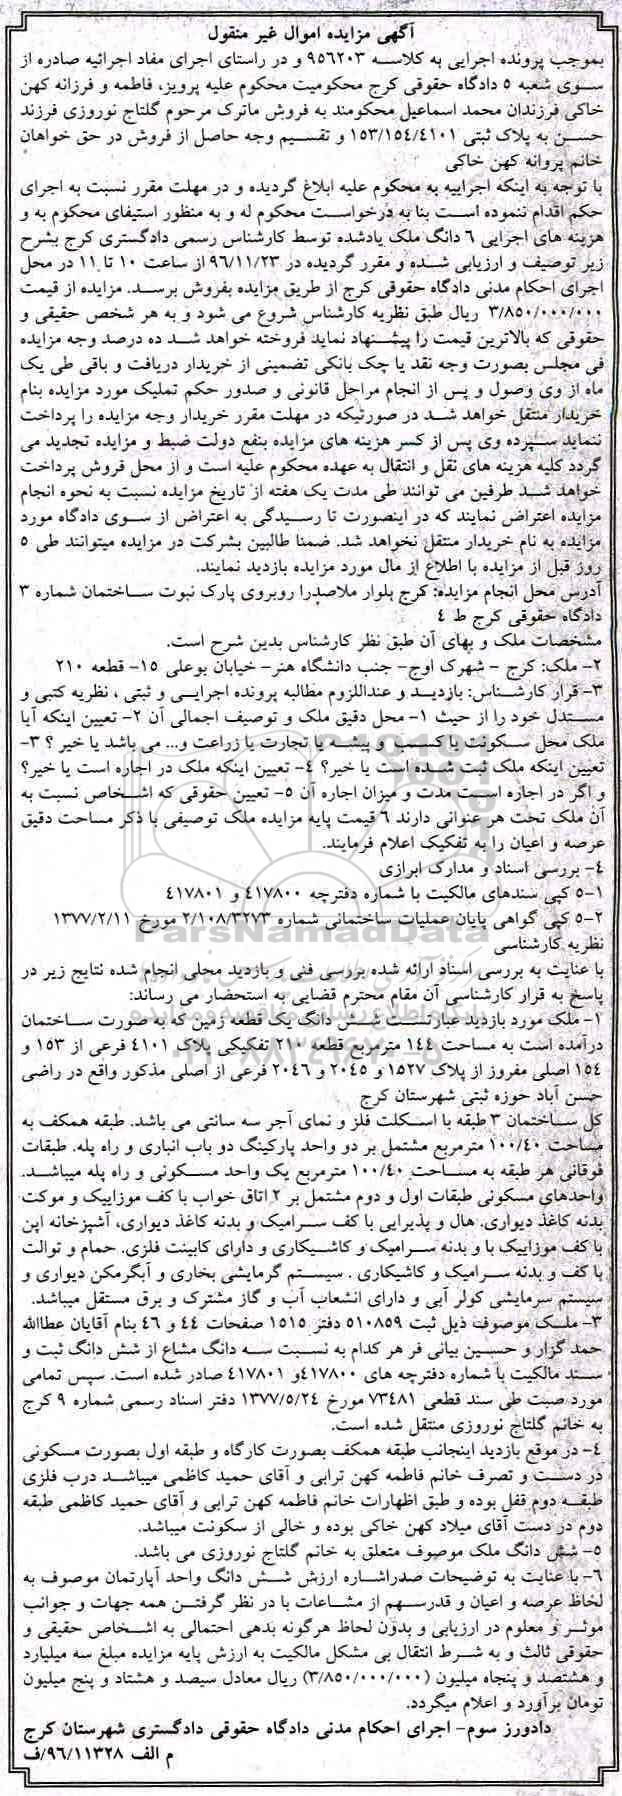 آگهی مزایده اموال غیر منقول
بموجب پرونده اجرایی به کلاسه ۹۵۶۲۰۳ و در راستای اجرای مفاد اجرائیه صادره از
سوی شعبه ۵ دادگاه حقوقی کرج محکومیت محکوم علیه پرویز، فاطمه و فرزانه کهن
خاکی فرزندان محمد اسماعیل محکومند به فروش ماترک مرحوم گلتاج نوروزی فرزند
حسن به پلاک ثبتی ۱۵۳/۱۵۴/۴۱۰۱ و تقسیم وجه حاصل از فروش در حق خواهان
خانم پروانه کهن خاکی
با توجه به اینکه اجراییه به محکوم علیه ابلاغ گردیده و در مهلت مقرر نسبت به اجرای
حکم اقدام ننموده است بنا به درخواست محکوم له و به منظور استیفای محکوم به و
هزینه های اجرایی ۶ دانگ ملک یادشده توسط کارشناس رسمی دادگستری کرج بشرح
زیر توصیف و ارزیابی شده و مقرر گردیده در ۹۶/۱۱/۲۳ از ساعت ۱۰ تا ۱۱ در محل
اجرای احکام مدنی دادگاه حقوقی کرج از طریق مزایده بفروش برسد. مزایده از قیمت
۳/۸۵۰/۰۰۰/۰۰۰ ریال طبق نظریه کارشناس شروع می شود و به هر شخص حقیقی و
حقوقی که بالاترین قیمت را پیشنهاد نماید فروخته خواهد شد ده درصد وجه مزایده
فی مجلس بصورت وجه نقد یا چک بانکی تضمینی از خریدار دریافت و باقی طی یک
ماه از وی وصول و پس از انجام مراحل قانونی و صدور حکم تملیک مورد مزایده بنام
خریدار منتقل خواهد شد در صورتیکه در مهلت مقرر خریدار وجه مزایده را پرداخت
ننماید سپرده وی پس از کسر هزینه های مزایده بنفع دولت ضبط و مزایده تجدید می
گردد کلیه هزینه های نقل و انتقال به عهده محکوم علیه است و از محل فروش پرداخت
خواهد شد طرفین می توانند طی مدت یک هفته از تاریخ مزایده نسبت به نحوه انجام
مزایده اعتراض نمایند که در اینصورت تا رسیدگی به اعتراض از سوی دادگاه مورد
مزایده به نام خریدار منتقل نخواهد شد. ضمنا طالبین بشرکت در مزایده میتوانند طی ۵
روز قبل از مزایده با اطلاع از مال مورد مزایده بازدید نمایند.
آدرس محل انجام مزایده: کرج بلوار ملاصدرا روبروی پارک نبوت ساختمان شماره ۳
دادگاه حقوقی کرج ط ۴
مشخصات ملک و بهای آن طبق نظر کارشناس بدین شرح است.
۲- ملک: کرج - شهرک اوج- جنب دانشگاه هنر- خیابان بوعلی ۱۵- قطعه ۲۱۰
۳- قرار کارشناس: بازدید و عنداللزوم مطالبه پرونده اجرایی و ثبتی ، نظریه کتبی و
مستدل خود را از حیث ۱- محل دقیق ملک و توصیف اجمالی آن ۲- تعیین اینکه آیا
ملک محل سکونت یا کسب و پیشه یا تجارت یا زراعت و... می باشد یا خیر ؟ ۳-
تعیین اینکه ملک ثبت شده است یا خیر؟ ۴- تعیین اینکه ملک در اجاره است یا خیر؟
و اگر در اجاره است مدت و میزان اجاره آن ۵- تعیین حقوقی که اشخاص نسبت به
آن ملک تحت هر عنوانی دارند ۶ قیمت پایه مزایده ملک توصیفی با ذکر مساحت دقیق
عرصه و اعیان را به تفکیک اعلام فرمایند.
۴- بررسی اسناد و مدارک ابرازی
۵-۱ کپی سندهای مالکیت با شماره دفترچه ۴۱۷۸۰۰ و ۴۱۷۸۰۱
۵-۲ کپی گواهی پایان عملیات ساختمانی شماره ۲/۱۰۸/۳۲۷۳ مورخ ۱۳۷۷/۲/۱۱
ParsNamadData
نظریه کارشناسی
با عنایت به بررسی اسناد ارائه شده بررسی فنی و بازدید محلی انجام شده نتایج زیر در
پاسخ به قرار کارشناسی آن مقام محترم قضایی به استحضار می رساند:
۱- ملک مورد بازدید عبارتست شش دانگ یک قطعه زمین که به صورت ساختمان
درآمده است به مساحت ۱۴۴ مترمربع قطعه ۲۱۰ تفکیکی پلاک ۴۱۰۱ فرعی از ۱۵۳ و
۱۵۴ اصلی مفروز از پلاک ۱۵۲۷ و ۲۰۴۵ و ۲۰۴۶ فرعی از اصلی مذکور واقع در راضی
حسن آباد حوزه ثبتی شهرستان کرج
کل ساختمان ۳ طبقه با اسکلت فلز و نمای آجر سه سانتی می باشد. طبقه همکف به
مساحت ۱۰۰/۴۰ مترمربع مشتمل بر دو واحد پارکینگ دو باب انباری و راه پله. طبقات
فوقانی هر طبقه به مساحت ۱۰۰/۴۰ مترمربع یک واحد مسکونی و راه پله میباشد.
واحدهای مسکونی طبقات اول و دوم مشتمل بر ۲ اتاق خواب با کف موزاییک و موکت
بدنه کاغذ دیواری. هال و پذیرایی با کف سرامیک و بدنه کاغذ دیواری، آشپزخانه اپن
با کف موزاییک با و بدنه سرامیک و کاشیکاری و دارای کابینت فلزی. حمام و توالت
با کف و بدنه سرامیک و کاشیکاری . سیستم گرمایشی بخاری و آبگرمکن دیواری و
سیستم سرمایشی کولر آبی و دارای انشعاب آب و گاز مشترک و برق مستقل میباشد.
۳- ملک موصوف ذیل ثبت ۵۱۰۸۵۹ دفتر ۱۵۱۵ صفحات ۴۴ و ۴۶ بنام آقایان عطاالله
حمد گزار و حسین بیانی فر هر کدام به نسبت سه دانگ مشاع از شش دانگ ثبت و
سند مالکیت با شماره دفترچه های ۴۱۷۸۰۰و ۴۱۷۸۰۱ صادر شده است. سپس تمامی
مورد صبت طی سند قطعی ۷۳۴۸۱ مورخ ۱۳۷۷/۵/۲۴ دفتر اسناد رسمی شماره ۹ کرج
به خانم گلتاج نوروزی منتقل شده است.
۴- در موقع بازدید اینجانب طبقه همکف بصورت کارگاه و طبقه اول بصورت مسکونی
در دست و تصرف خانم فاطمه کهن ترابی و آقای حمید کاظمی میباشد درب فلزی
طبقه دوم قفل بوده و طبق اظهارات خانم فاطمه کهن ترابی و آقای حمید کاظمی طبقه
دوم در دست آقای میلاد کهن خاکی بوده و خالی از سکونت میباشد.
۵- شش دانگ ملک موصوف متعلق به خانم گلتاج نوروزی می باشد.
۶- با عنایت به توضیحات صدراشاره ارزش شش دانگ واحد آپارتمان موصوف به
لحاظ عرصه و اعیان و قدرسهم از مشاعات با در نظر گرفتن همه جهات و جوانب
موثر و معلوم در ارزیابی و بدون لحاظ هرگونه بدهی احتمالی به اشخاص حقیقی و
حقوقی ثالث و به شرط انتقال بی مشکل مالکیت به ارزش پایه مزایده مبلغ سه میلیارد
و هشتصد و پنجاه میلیون (۳/۸۵۰/۰۰۰/۰۰۰) ریال معادل سیصد و هشتاد و پنج میلیون
تومان برآورد و اعلام میگردد.
دادورز سوم- اجرای احکام مدنی دادگاه حقوقی دادگستری شهرستان کرج
م الف ۹۶/۱۱۳۲۸/ف